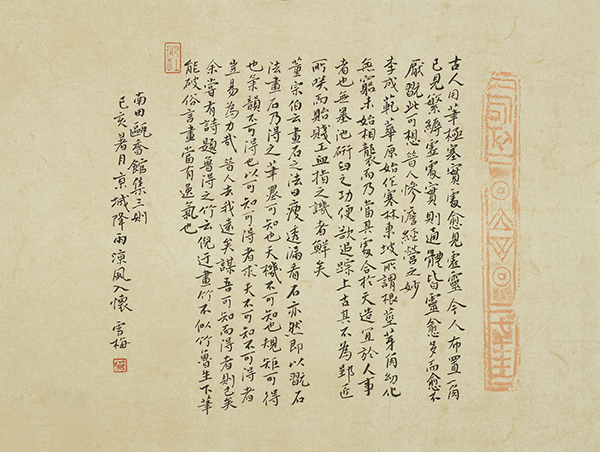 古人用筆極塞實處愈見虛靈今人布置一角
已見繁縟虛處實則通體皆靈愈多而愈不
厭翫此可想昔人慘澹經營之妙
李成範華原始作寒林東坡所謂根莖牙角幻化
無窮未始相襲而乃當其處合於天造宜於人事
者也無墨池研臼之功便欲追踪上古其不為郢匠
所咲而貽賤工血指之譏者鮮矣
董宗伯云畫石之法曰瘦透漏看石亦然即以翫石
法畫石乃得之 筆墨可知也天機不可知也規矩可得
也氣韻不可得也以可知可得者求夫不可知不可得者
豈易為力哉昔人去我遠矣謀吾可知而得者則已矣
余嘗有詩題魯得之竹云倪迂畫竹不似竹魯生下筆
能破俗言畫當有逸氣也
南田甌香館集三則
己亥暑月京城降雨涼風入懷 雪梅